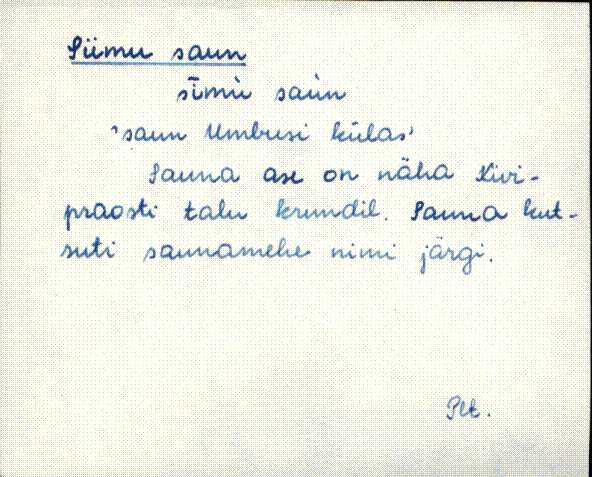 Siimu saun
sīmù saùn
'saun Umbusi külas'
Sauna ase on näha Kivi-
praosti talu krundil. Sauna kut-
suti saunamehe nimi järgi.
Plt.